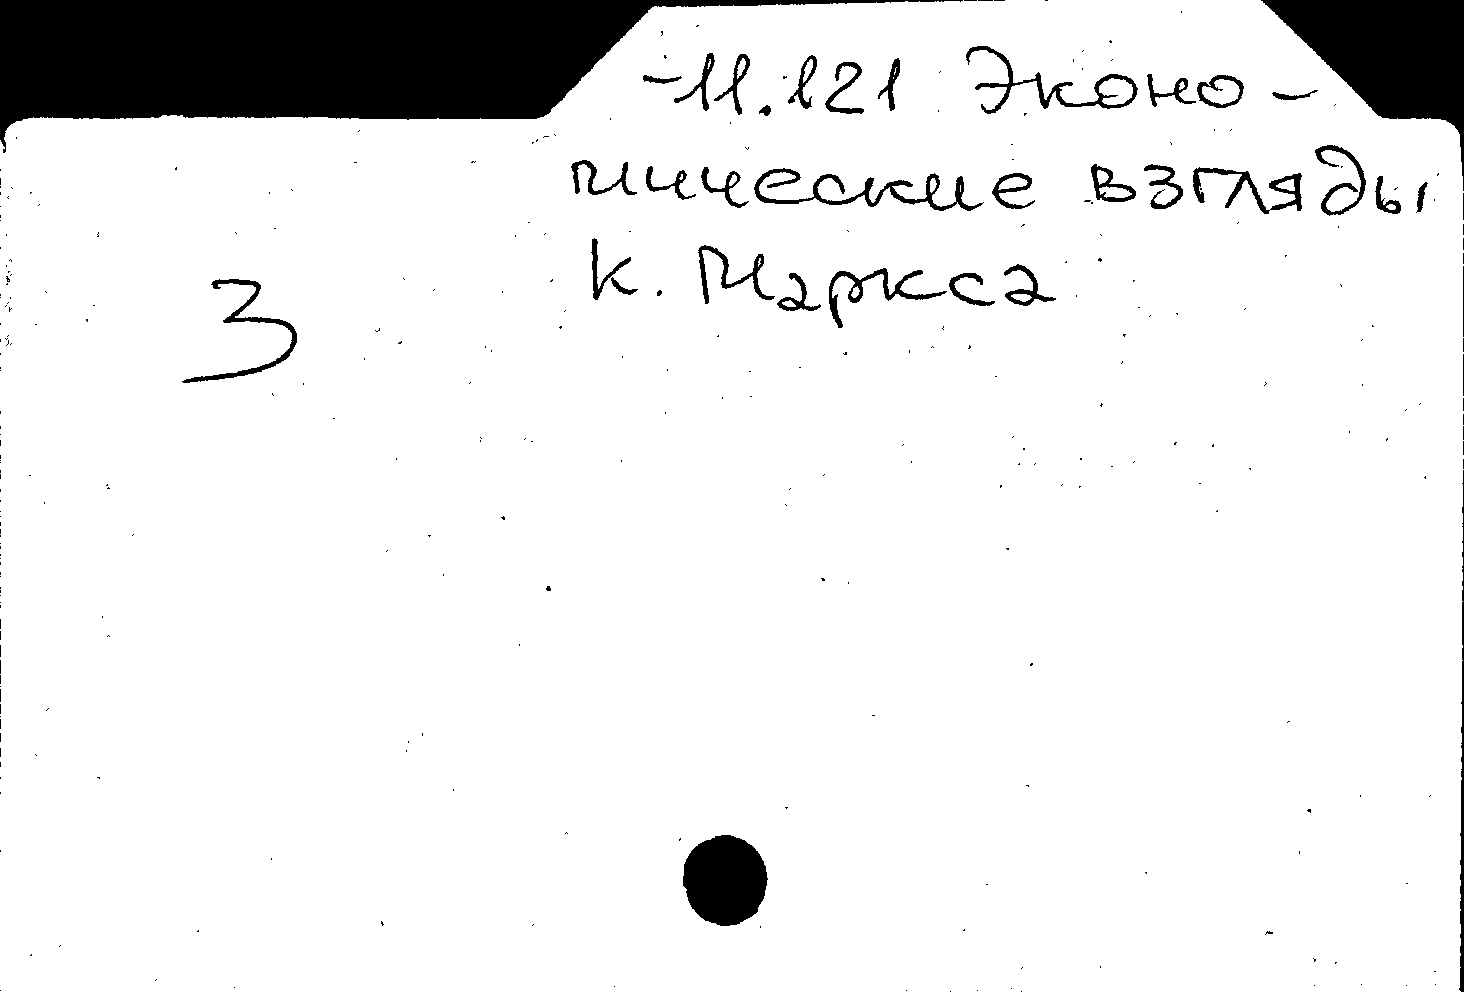 -11.121 Эконо-
мические взгляды
К. Маркса
3